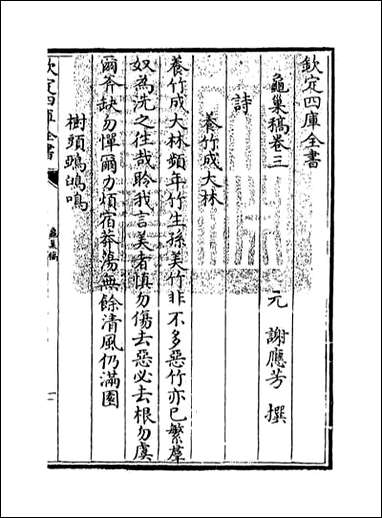 欽定四庫全書
龜巢稿卷三
元 謝應芳 撰
詩
養竹成大林
養竹成大林頻年竹生孫美竹非不多惡竹亦已繁羣
奴為洗之往哉聆我言美者慎勿傷去惡必去根勿虞
爾斧缺勿憚爾力煩宿莽蕩無餘清風仍滿園
樹頭鵓鴣鳴
欽定四庫全書
龜巢稿
一